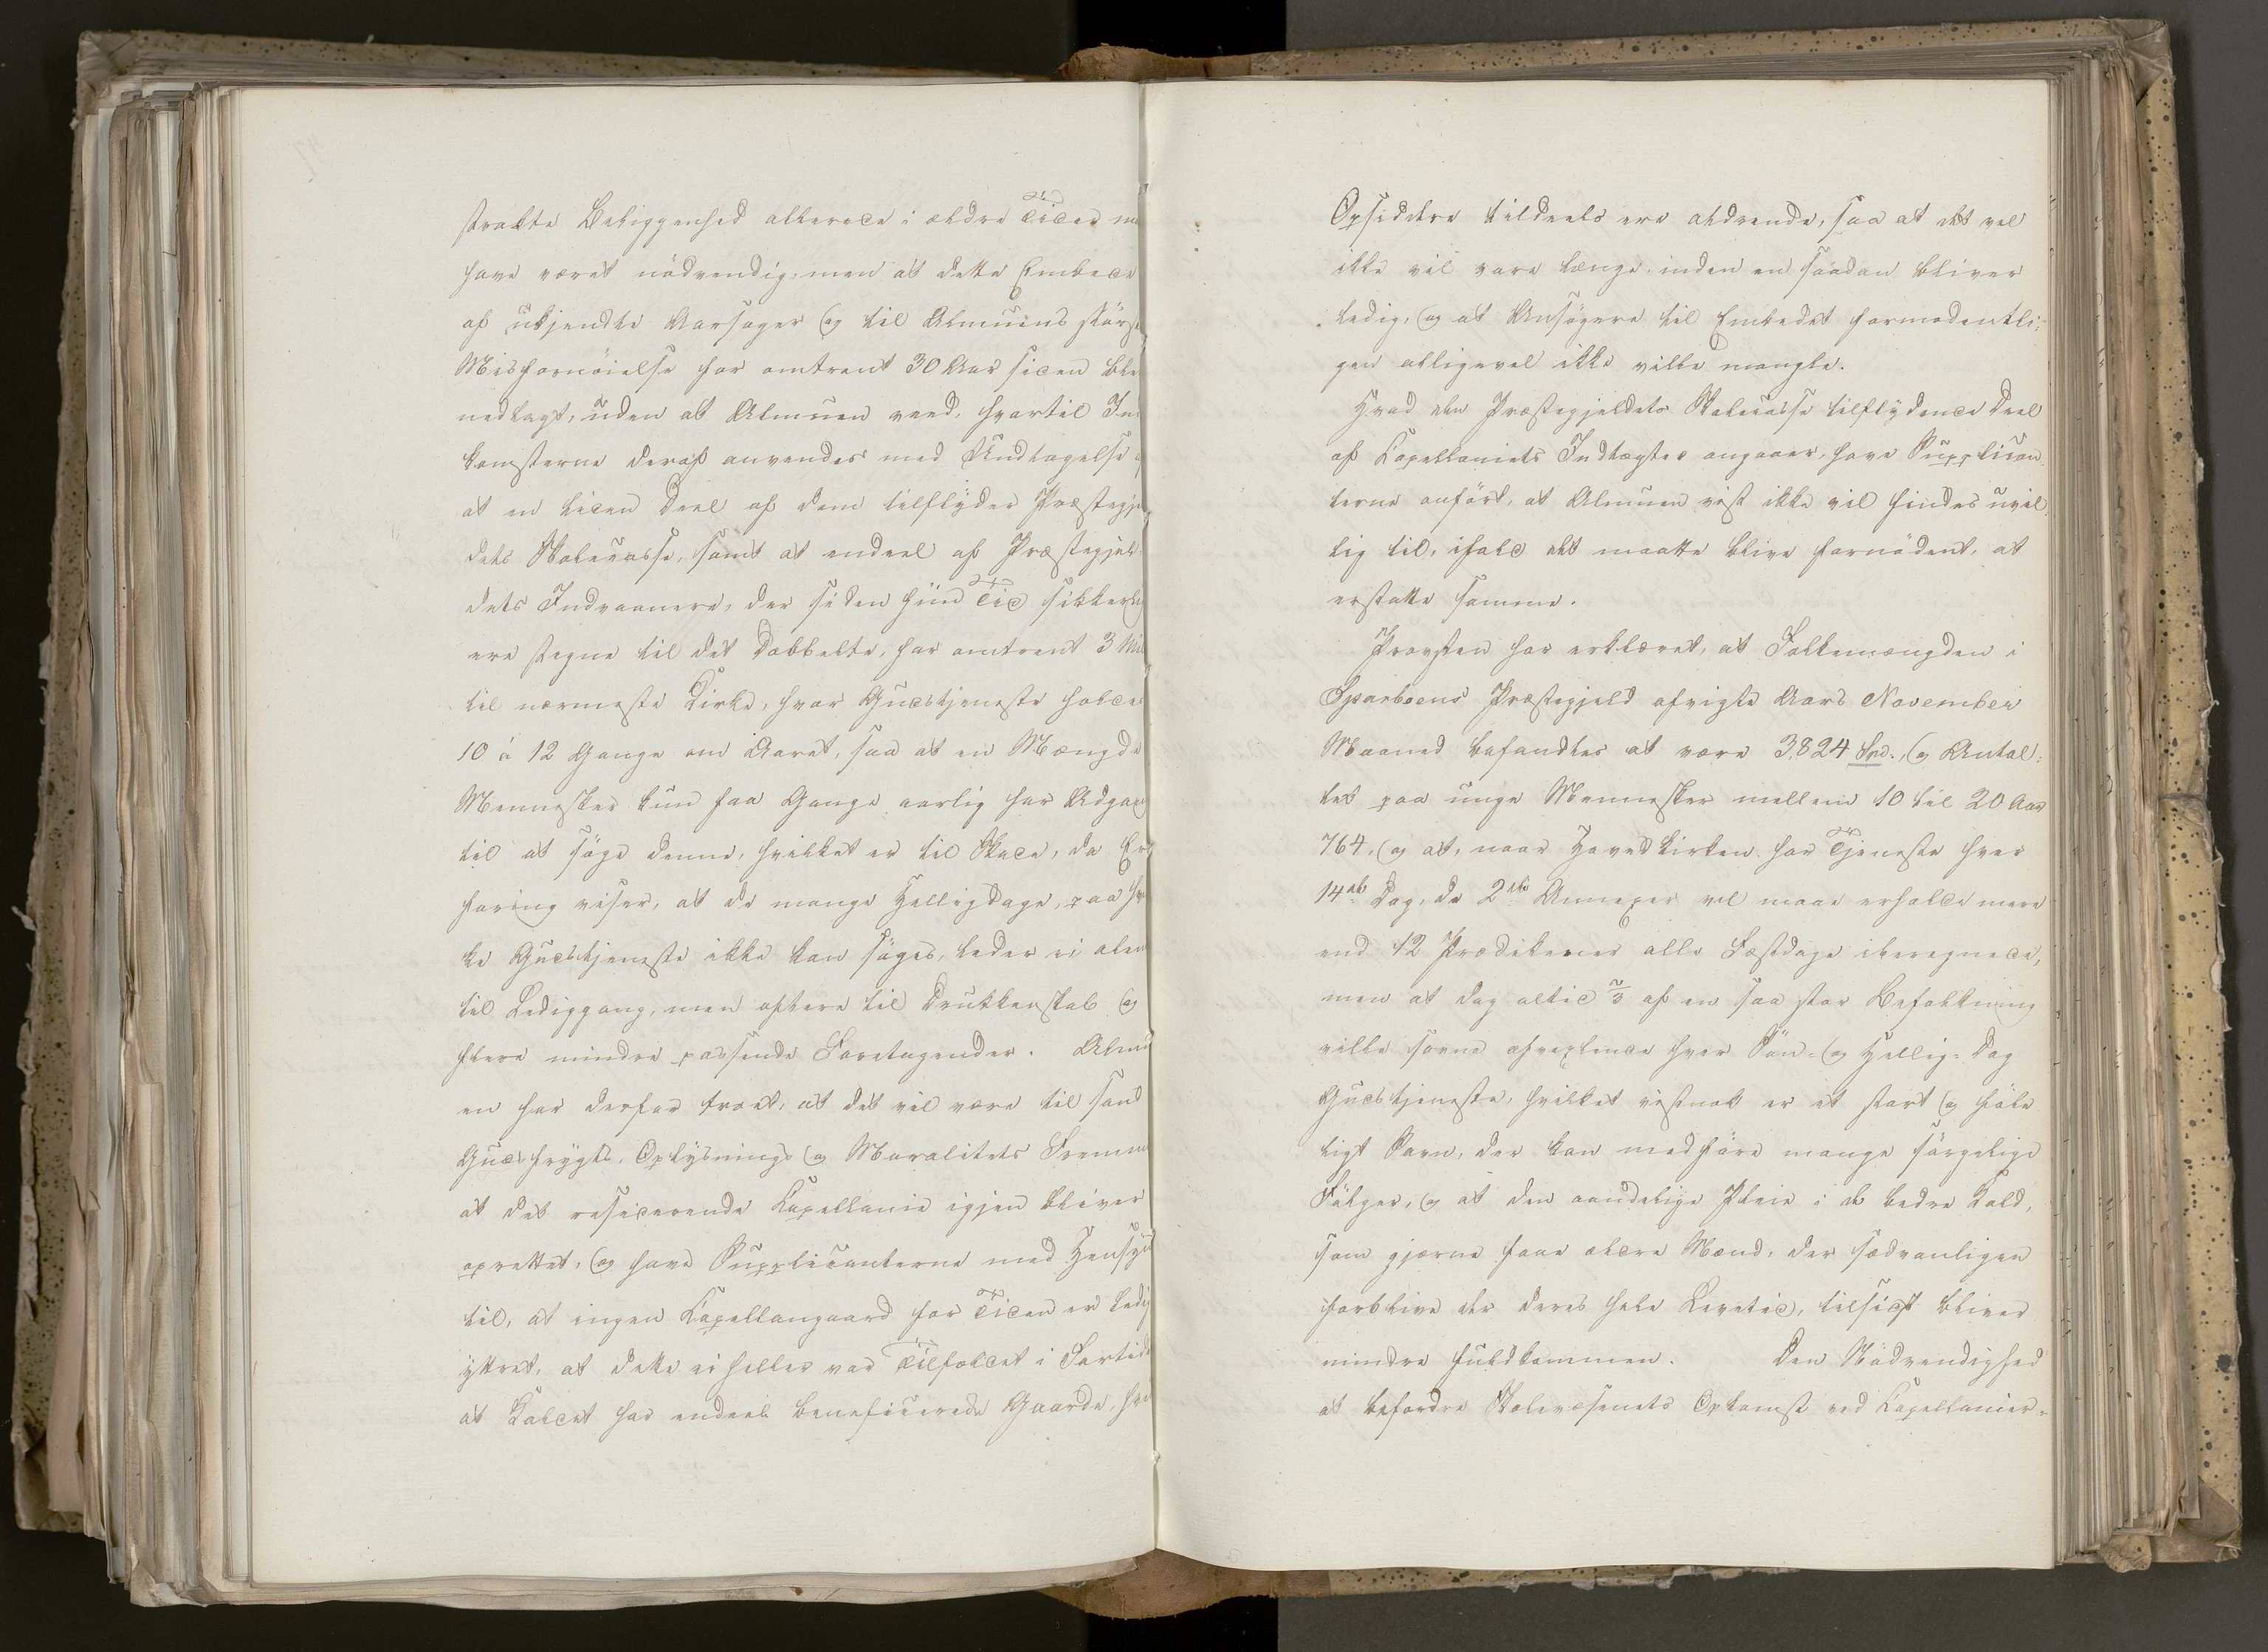 strakte Beliggenhed allerede i ældre Tider m
have været nödvendig, men at dette Embede
af ubekjendte Aarsager og til Almuens störst
Misfornöielse for omtrent 30 Aar siden ble
nedlagt, uden at Almuen veed, hvortil In=
komsterne deraf anvendes med Undtagelse a
at en liden Deel af dem tilflyder Præstegje
dets Skolecasse, samt at endeel af Præstegjel=
dets Indvaanere, der siden hiin Tid sikkerl
ere stegne til det Dobbelte, har omtrent 3 Mil
til nærmeste Kirke, hvor Gudstjeneste holdes
10 à 12 Gange om Aaret, saa at en Mængde
Mennesker kun faa Gange aarlig har Adgang
til at söge denne, hvilket er til Skade, da Er=
faring viser, at de mange Helligdage, paa hvil
ke Gudstjeneste ikke kan söges, leder ei alen
til Lediggang, men oftere til Drukkenskab og
flere mindre passende Foretagender. Almu
en har derfor troet, at det vil være til sand
Gudsfrygts, Oplysnings og Moralitets Fremme
at det residerende Kapellanie igjen bliver
oprettet, og have Supplicanterne med Hensyn
til, at ingen Kapellangaard for Tiden er ledig
yttret, at dette ei heller var Tilfældet i Fortide
at Kaldet har endeel beneficerede Gaarde, hvis
Opsiddere tildeels ere aldrende, saa at det vel
ikke vil vare længe, inden en saadan bliver
ledig, og at Ansögere til Embedet formodentli=
gen alligevel ikke ville mangle.
Hvad den Præstegjeldets Skolecasse tilflydende Deel
af Kapellaniets Indtægter angaaer, have Supplican=
terne anfört, at Almuen vist ikke vil findes uvil=
lig til, ifald det maatte blive fornödent, at
erstatte samme.
Provsten har erklæret, at Folkemængden i
Sparboens Præstegjeld afvigte Aars November
Maaned befandtes at være 3824 Spd., og Antal=
let paa unge Mennesker mellem 10 til 20 Aar
764, og at, naar Hovedkirken har Tjeneste hver
14de Dag, de 2de Annexer vel maae erholde mere
end 12 Prædikener alle Festdage iberegnede,
men at dog altid 2/3 af en saa stor Befolkning
ville savne afvexlende hver Sön= og Hellig=Dag
Gudstjeneste, hvilket vistnok er et stort og föle
ligt Savn, der kan medföre mange sörgelige
Fölger, og at den aandelige Pleie i de bedre Kald,
som gjerne faae ældre Mænd, der sædvanligen
forblive der deres hele Levetid, tilsidst bliver
mindre fuldkommen. Den Nödvendighed
at befordre Skolevæsenets Opkomst ved Kapellanier=